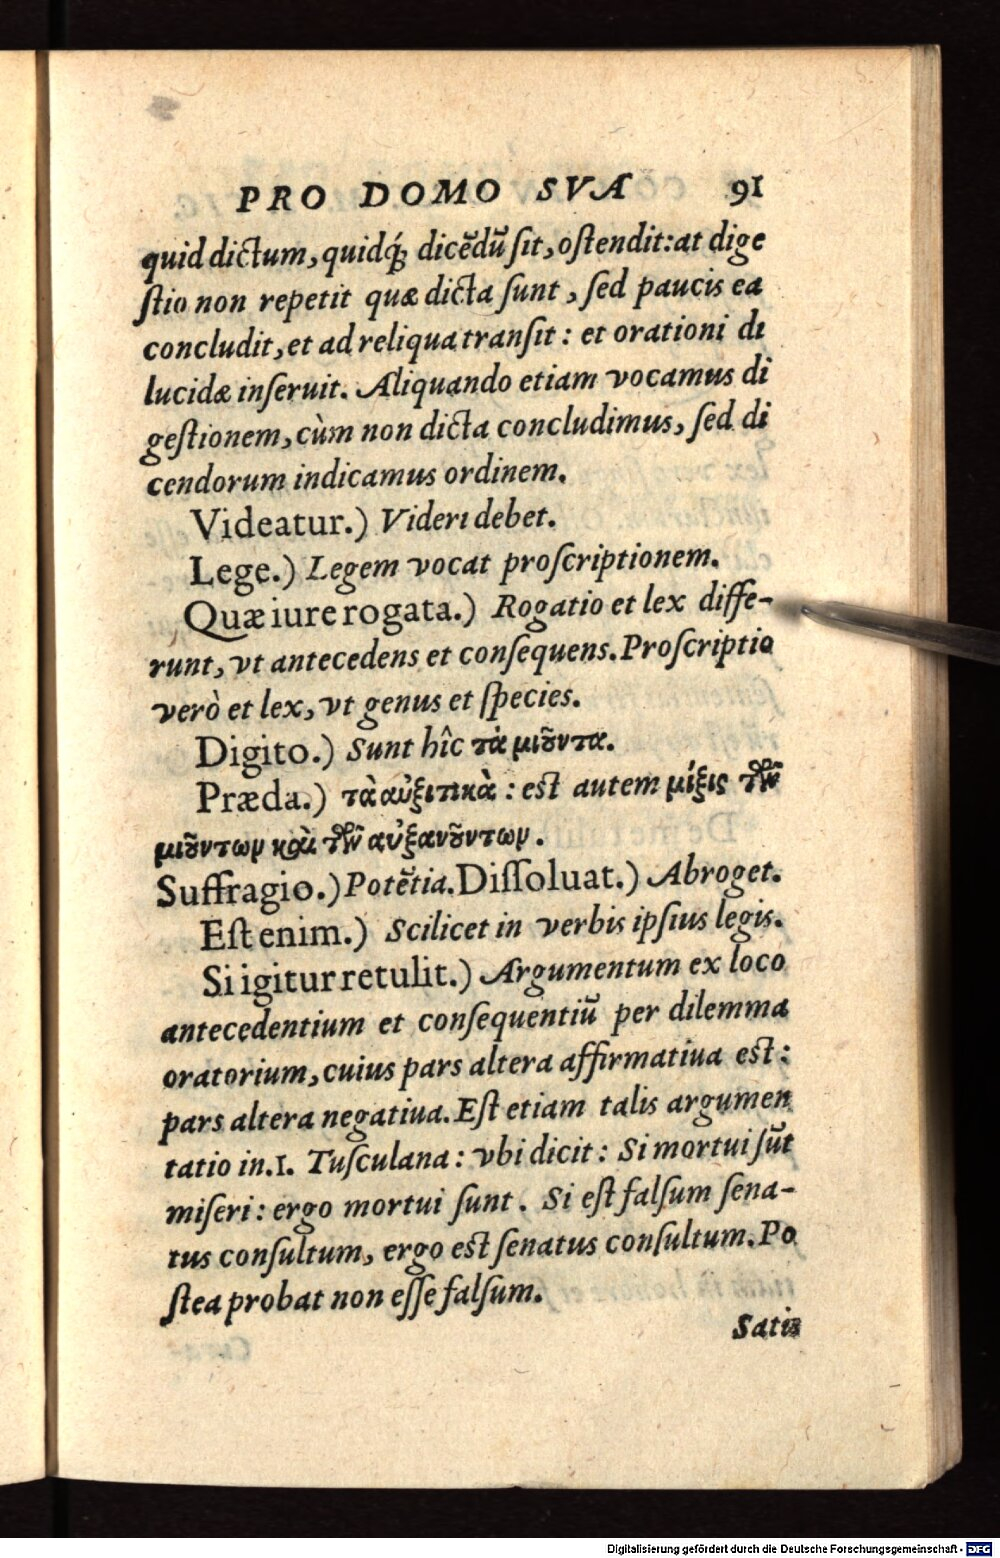 PRO DOMO SVA 91
quid dictum, quidq́; dicẽdũ sit, ostendit: at dige
stio non repetit quæ dicta sunt, sed paucis ea
concludit, et ad reliqua transit: et orationi di
lucidæ inseruit. Aliquando etiam vocamus di
gestionem, cùm non dicta concludimus, sed di
cendorum indicamus ordinem.
Videatur.) Videri debet.
Lege.) Legem vocat proscriptionem.
Quæ iure rogata.) Rogatio et lex diffe-
runt, vt antecedens et consequens. Proscriptio
verò et lex, vt genus et species.
Digito.) Sunt hîc τὰ μιοῦντα.
Præda.) τὰ αὐξιτικὰ: est autem μίξις τῶν
μιούντων καὶ τῶν αὐξανούντων.
Suffragio.) Potẽtia. Dissoluat.) Abroget.
Est enim.) Scilicet in verbis ipsius legis.
Si igitur retulit.) Argumentum ex loco
antecedentium et consequentiũ per dilemma
oratorium, cuius pars altera affirmatiua est:
pars altera negatiua. Est etiam talis argumen
tatio in. 1. Tusculana: vbi dicit: Si mortui sũt
miseri: ergo mortui sunt. Si est falsum sena-
tus consultum, ergo est senatus consultum. Po
stea probat non esse falsum.
Satis
Digitalisierung gefördert durch die Deutsche Forschungsgemeinschaft - DFG